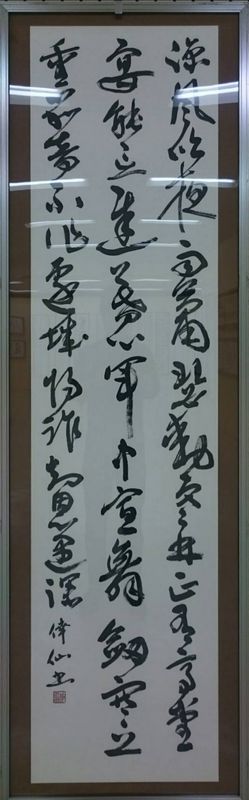 涼風吹夜雨蕭瑟動寒林正有高堂
宴能忘遲暮心軍中宜舞劍塞上
重笳音不作邊城將誰知恩遇深
偉仙書